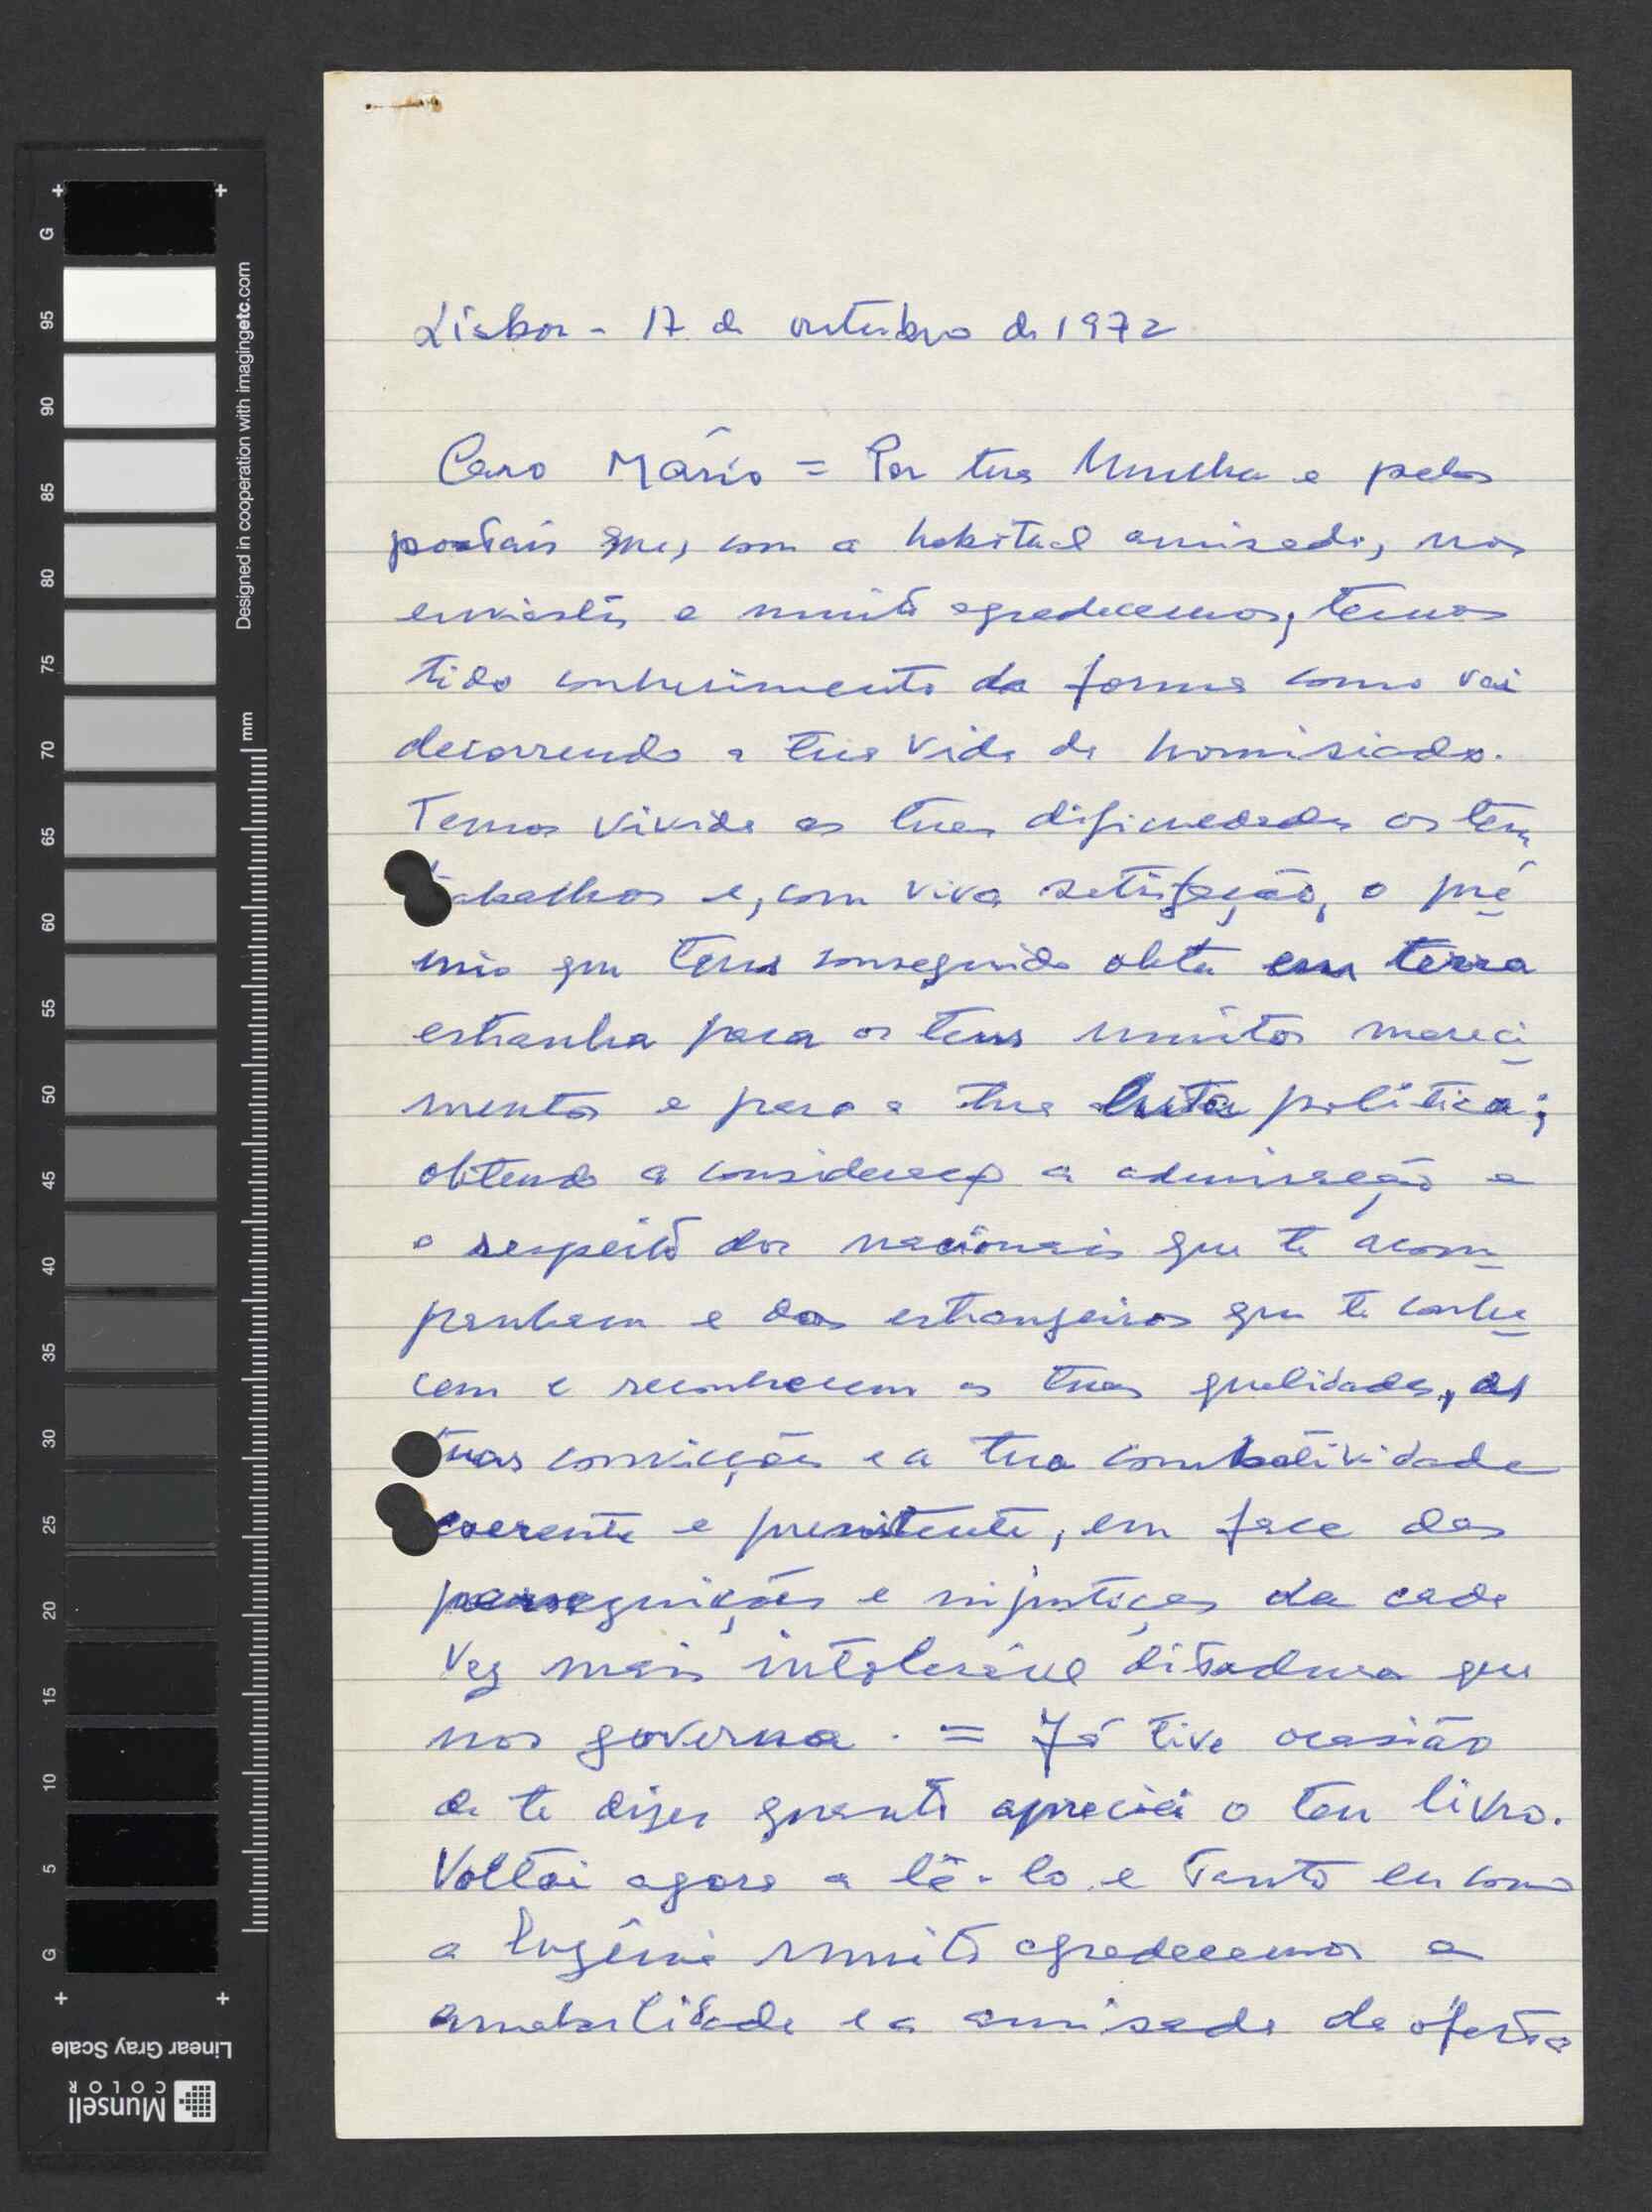 Lisboa - 17 de outubro de 1972
Caro Mário = Por tua Mulher e pelos
postais que, com a habitual amizade, nos
enviaste e muito agradecemos, temos
tido conhecimento da forma como vai
decorrendo a tua vida de homisiado.
Temos vivido as tuas dificuldades os teus
trabalhos e, com viva satisfação, o pré
mio que tens conseguido obter em terra
estranha para os teus muitos mereci
mentos e para a tua luta política;
obtendo a consideração a admiração e
o respeito dos nacionais que te acom
panham e dos estrangeiros que te conhe
cem e reconhecem as tuas qualidades, as
tuas convicções e a tua combatividade
coerente e persistente, em face das
perseguições e injustiças da cada
vez mais intolerável ditadura que
nos governa. = Já tive ocasião
de te dizer quanto apreciei o teu livro.
Voltei agora a lê-lo e tanto eu como
a Eugénia muito agradecemos a
amabilidade e a amizade da oferta
Designed in cooperation with imagingetc.com
mm
G
95
90
85
80
75
70
65
60
55
50
45
40
35
30
25
20
15
10
5
G
Linear Gray Scale
Munsell
COLOR